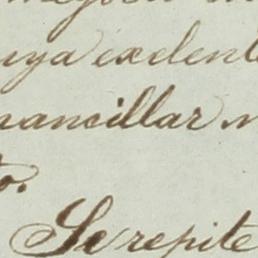 uya exelent
mancillar n
to.
Se repite